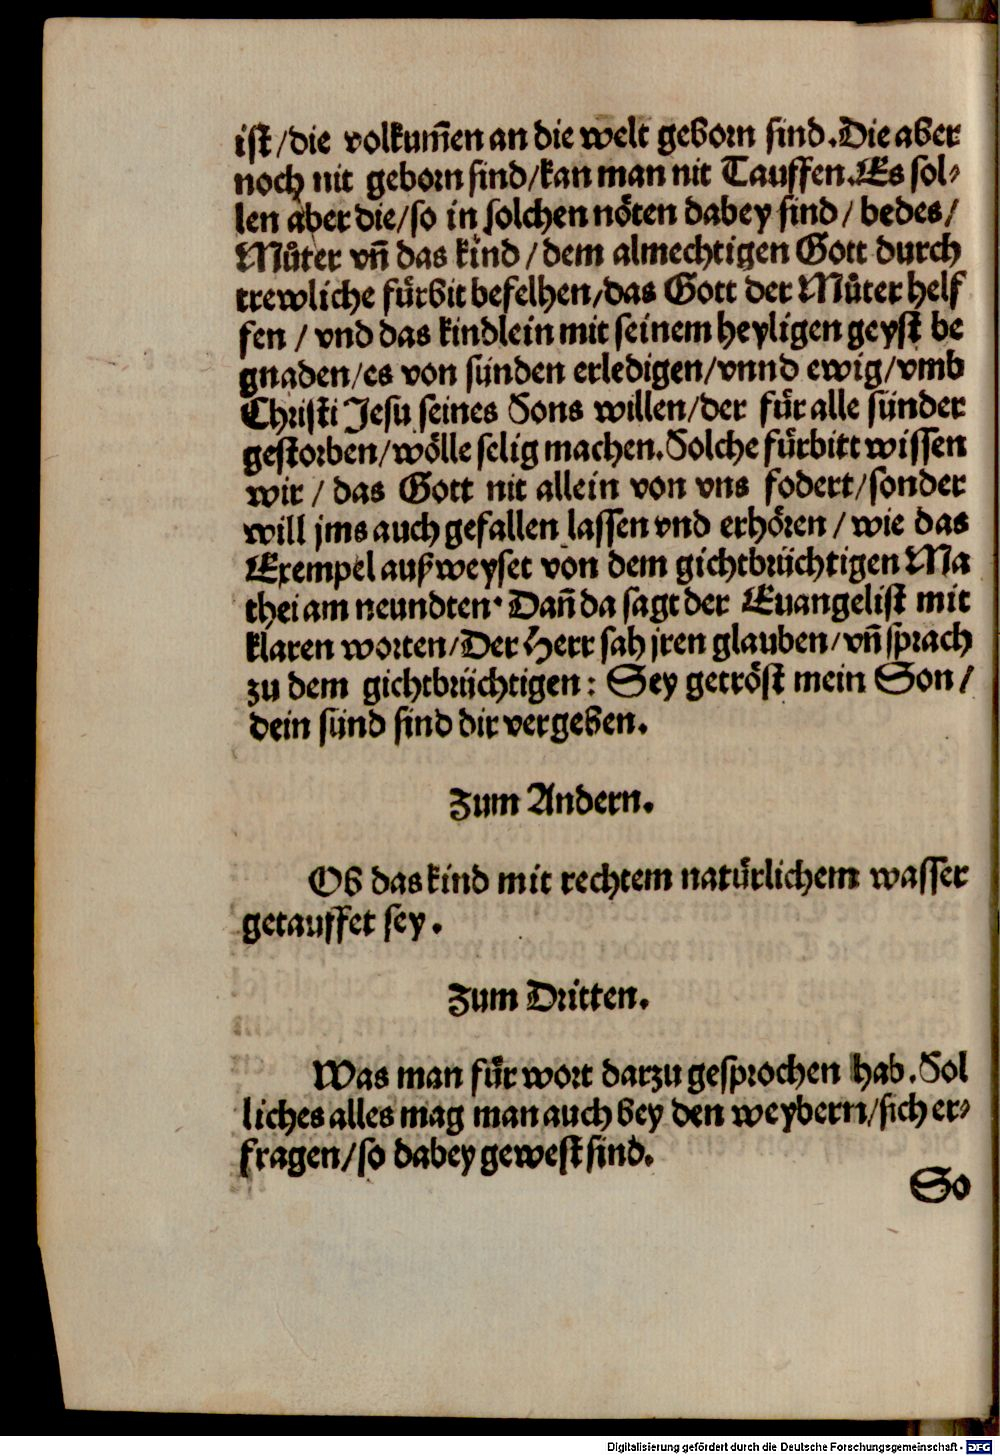 ist /die volkum̃en an die welt geborn sind.Die aber
noch nit geborn sind/kan man nit Tauffen.Es sol⸗
len aber die/so in solchen nöten dabey sind / bedes/
Můter vñ das kind / dem almechtigen Gott durch
trewliche fürbit befelhen/das Gott der Můter helf
fen / vnd das kindlein mit seinem heyligen geyst be
gnaden/es von sünden erledigen/vnnd ewig/vmb
Christi Jesu seines Sons willen/der für alle sünder
gestorben/wölle selig machen.Solche fürbitt wissen
wir / das Gott nit allein von vns fodert/sonder
will jms auch gefallen lassen vnd erhören / wie das
Exempel außweyset von dem gichtbrüchtigen Ma
thei am neundten. Dañ da sagt der Euangelist mit
klaren worten/Der Herr sah jren glauben/vñ sprach
zu dem gichtbrüchtigen: Sey getröst mein Son/
dein sünd sind dir vergeben.
Zum Andern.
Ob das kind mit rechtem natürlichem wasser
getauffet sey.
Zum Dritten.
Was man für wort darzu gesprochen hab.Sol
liches alles mag man auch bey den weybern/sich er⸗
fragen/so dabey gewest sind.
So
Digitalisierung gefördert durch die Deutsche Forschungsgemeinschaft - DFG